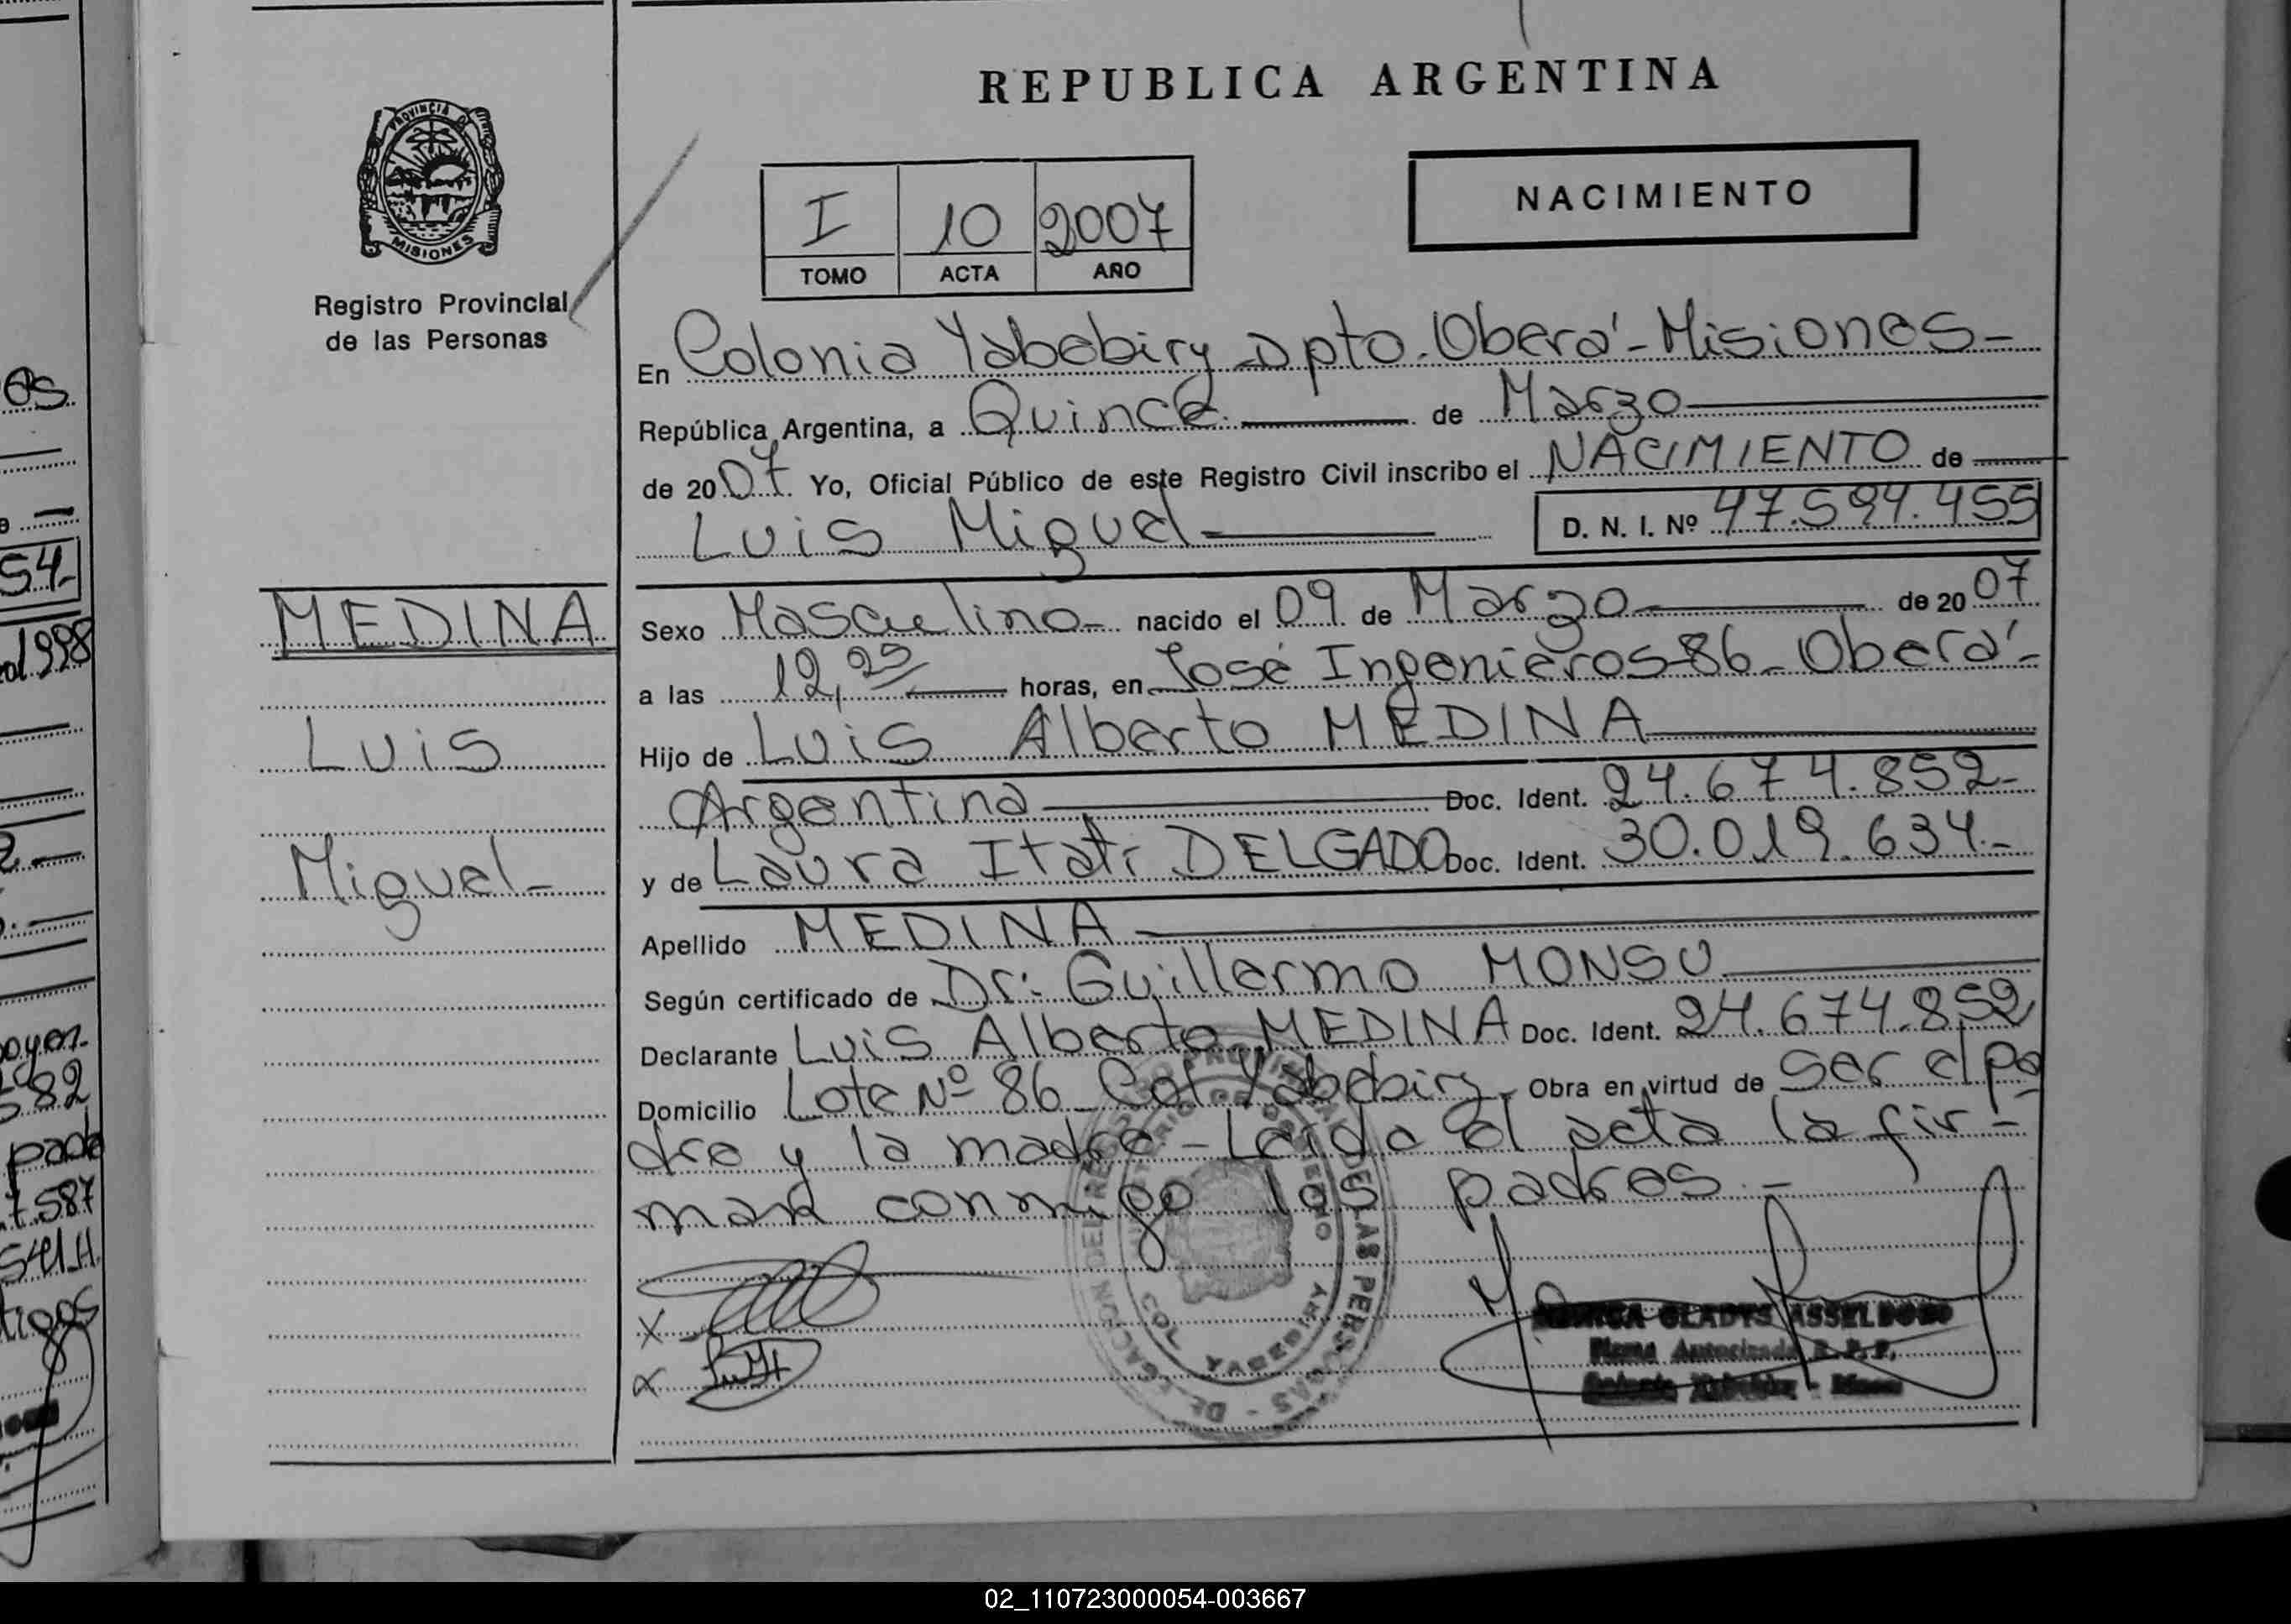 REPUBLICA ARGENTINA
PROVINCIA DE
MISIONES
Registro Provincial
de las Personas
I 10 2007
TOMO ACTA AÑO
NACIMIENTO
En Colonia Yabebiry Dpto. Oberá - Misiones -
República Argentina, a Quince de Marzo
de 2007 Yo, Oficial Público de este Registro Civil inscribo el NACIMIENTO de
Luis Miguel D. N. I. Nº 47.594.455
MEDINA
Luis
Miguel -
Sexo Masculino nacido el 09 de Marzo de 2007
a las 12, horas, en José Ingenieros 86 - Oberá -
Hijo de Luis Alberto MEDINA
Argentina Doc. Ident. 24.674.852 -
y de Laura Itatí DELGADO Doc. Ident. 30.019.634 -
Apellido MEDINA
Según certificado de Dr: Guillermo MONSU
Declarante Luis Alberto MEDINA Doc. Ident. 24.674.852
Domicilio Lote Nº 86 - Col Yabebiry - Obra en virtud de ser el pa
dre y la madre - Leída el acta la fir -
man conmigo los padres. -
X
X
GLADYS
Firma Autorizada R. P. P.
COL YABEBIRY
DE LAS PERSONAS
02_110723000054-003667